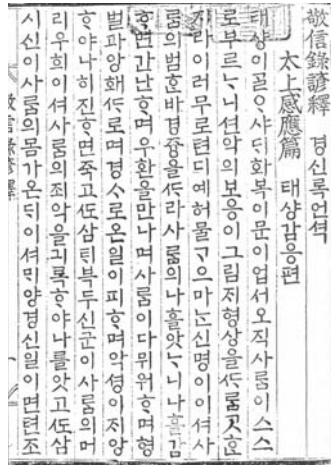 敬信錄諺釋 경신록언셕
太上感應篇 태샹감응편
태샹이ᄀᆞᆯᄋᆞ샤ᄃᆡ화복이문이업서오직사ᄅᆞᆷ이스스
로부르ᄂᆞ니션악의보응이그림ᄌᆡ형상을ᄯᆞ롬ᄀᆞᆺᄒᆞᆫ
지라이러무로텬디예허물ᄀᆞᄋᆞ마ᄂᆞᆫ신명이이셔사
ᄅᆞᆷ의범ᄒᆞᆫ바경즁을ᄯᆞ라사ᄅᆞᆷ의나흘앗ᄂᆞ니나흘감
ᄒᆞ면간난ᄒᆞ며우환을만나며사ᄅᆞᆷ이다뮈워ᄒᆞ며형
벌과앙홰ᄯᆞ로며경ᄉᆞ로온일이피ᄒᆞ며악셩이ᄌᆡ앙
ᄒᆞ야나히진ᄒᆞ면죽고ᄯᅩ삼ᄐᆡ북두신군이사ᄅᆞᆷ의머
리우희이셔사ᄅᆞᆷ의죄악을긔록ᄒᆞ야나를앗고ᄯᅩ삼
시신이사ᄅᆞᆷ의몸가온ᄃᆡ이셔ᄆᆡ양경신일이면텬조